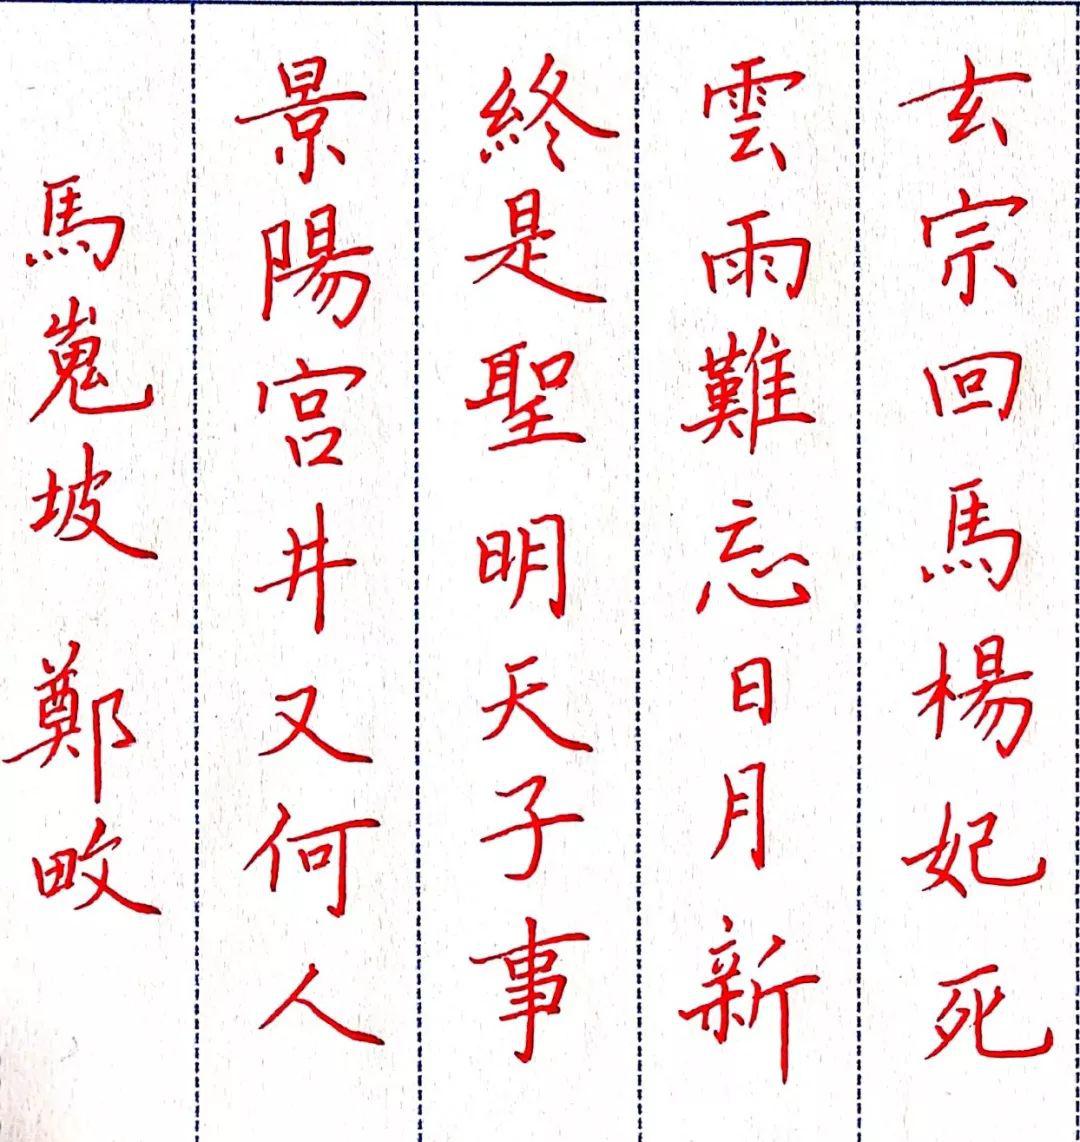 玄宗回馬楊妃死
雲雨難忘日月新
終是聖明天子事
景陽宮井又何人
馬嵬坡 鄭畋